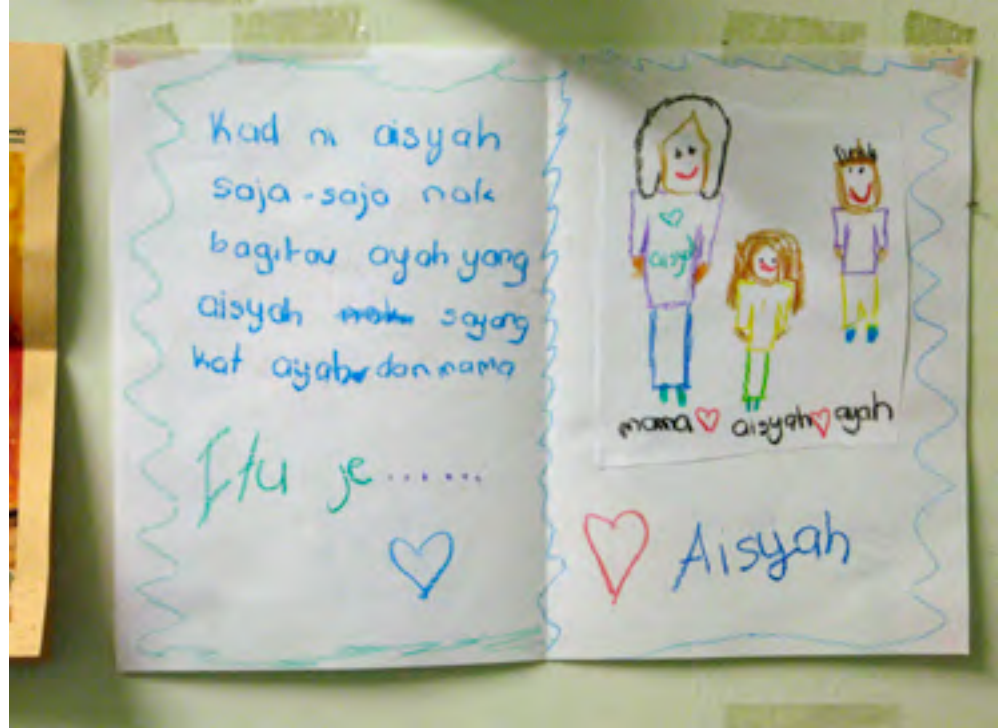 Kad ni aisyah
saja-saja nak
bagitau ayah yang
aisyah sayang
kat ayah dan mama
Itu je.......
aisyah
mama aisyah ayah
Aisyah